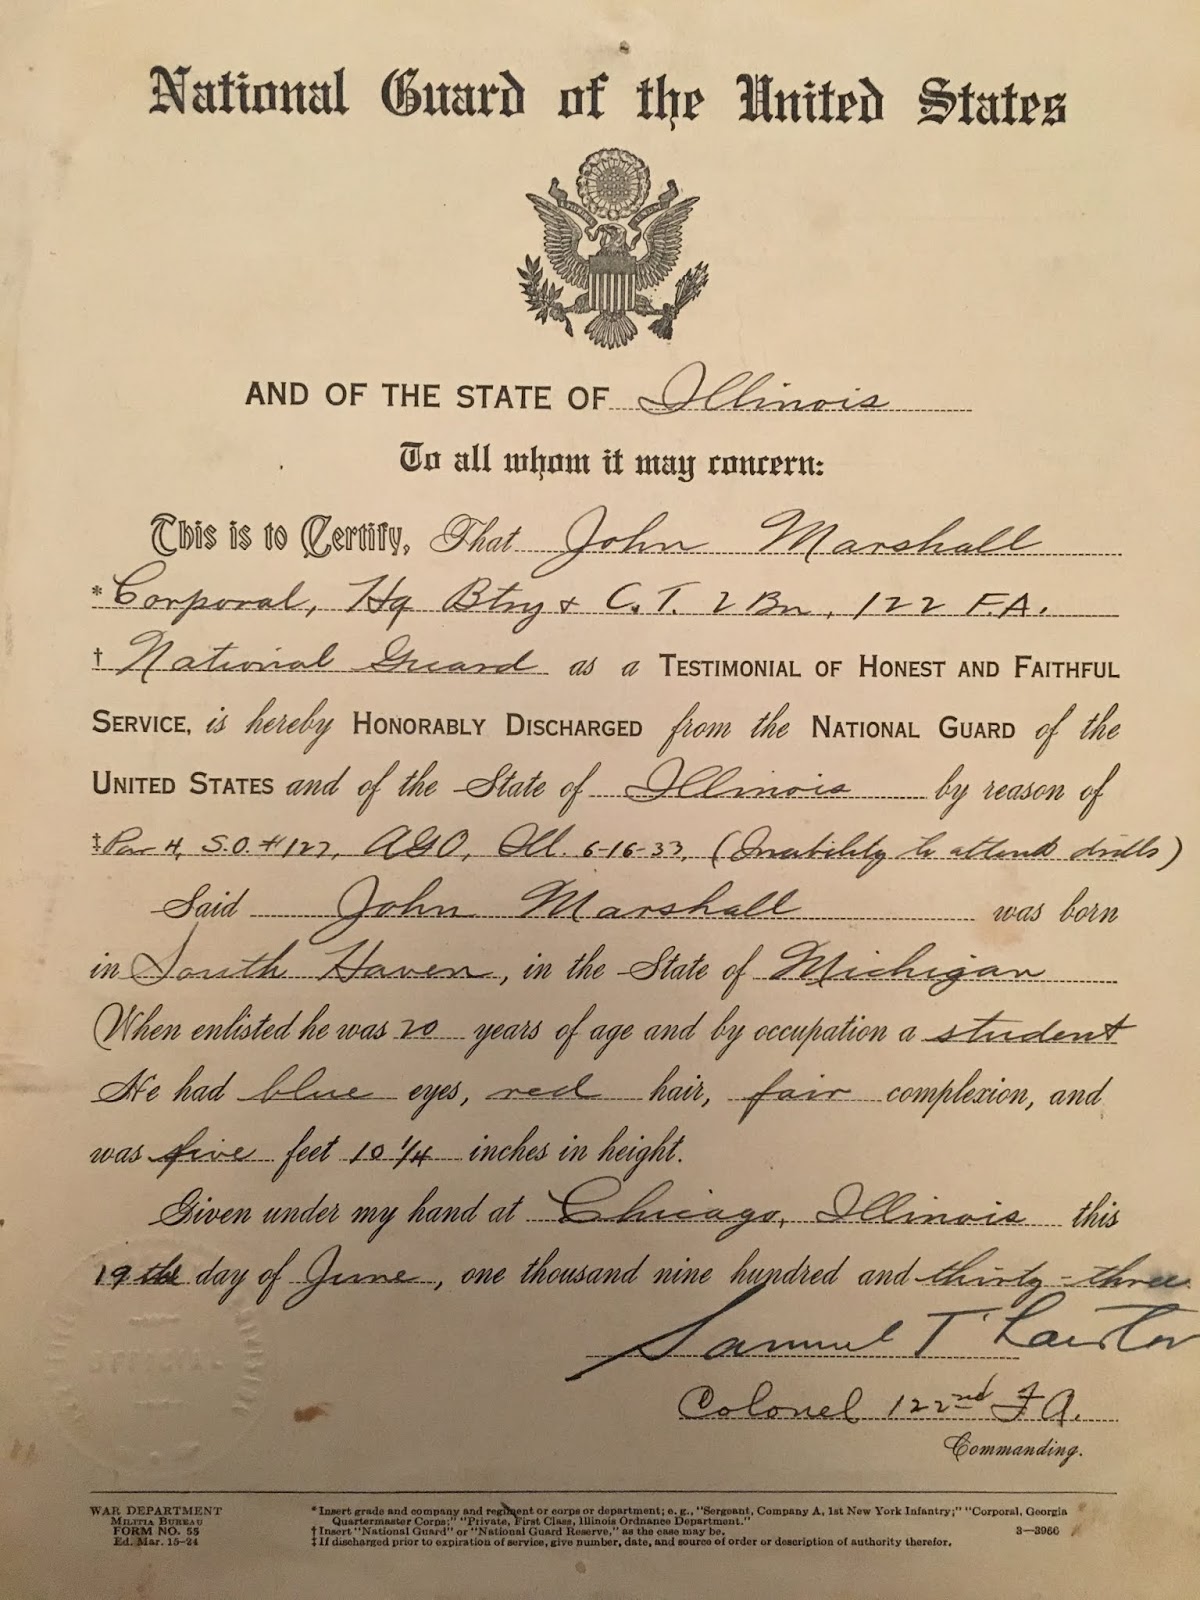 National Guard of the United States
AND OF THE STATE OF Illinois
To all whom it may concern:
This is to Certify, That John Marshall
* Corporal, Hq Btry & C.T. 2 Bn, 122 F.A.
† National Guard as a TESTIMONIAL OF HONEST AND FAITHFUL
SERVICE, is hereby HONORABLY DISCHARGED from the NATIONAL GUARD of the
UNITED STATES and of the State of Illinois by reason of
‡ Par 4, S.O. #127, AGO, Ill. 6-16-33, (Inability to attend drills)
Said John Marshall was born
in South Haven, in the State of Michigan
When enlisted he was 20 years of age and by occupation a student
He had blue eyes, red hair, fair complexion, and
was five feet 10 1/4 inches in height.
Given under my hand at Chicago, Illinois this
19th day of June, one thousand nine hundred and thirty-three
Samuel T.
Colonel 122nd F.A.
Commanding.
WAR DEPARTMENT
MILITIA BUREAU
FORM NO. 55
Ed. Mar. 15-24
*Insert grade and company and regiment or corps or department; e. g., "Sergeant, Company A, 1st New York Infantry;" "Corporal, Georgia
Quartermaster Corps;" "Private, First Class, Illinois Ordnance Department."
†Insert "National Guard" or "National Guard Reserve," as the case may be.
3—3966
‡If discharged prior to expiration of service, give number, date, and source of order or description of authority therefor.